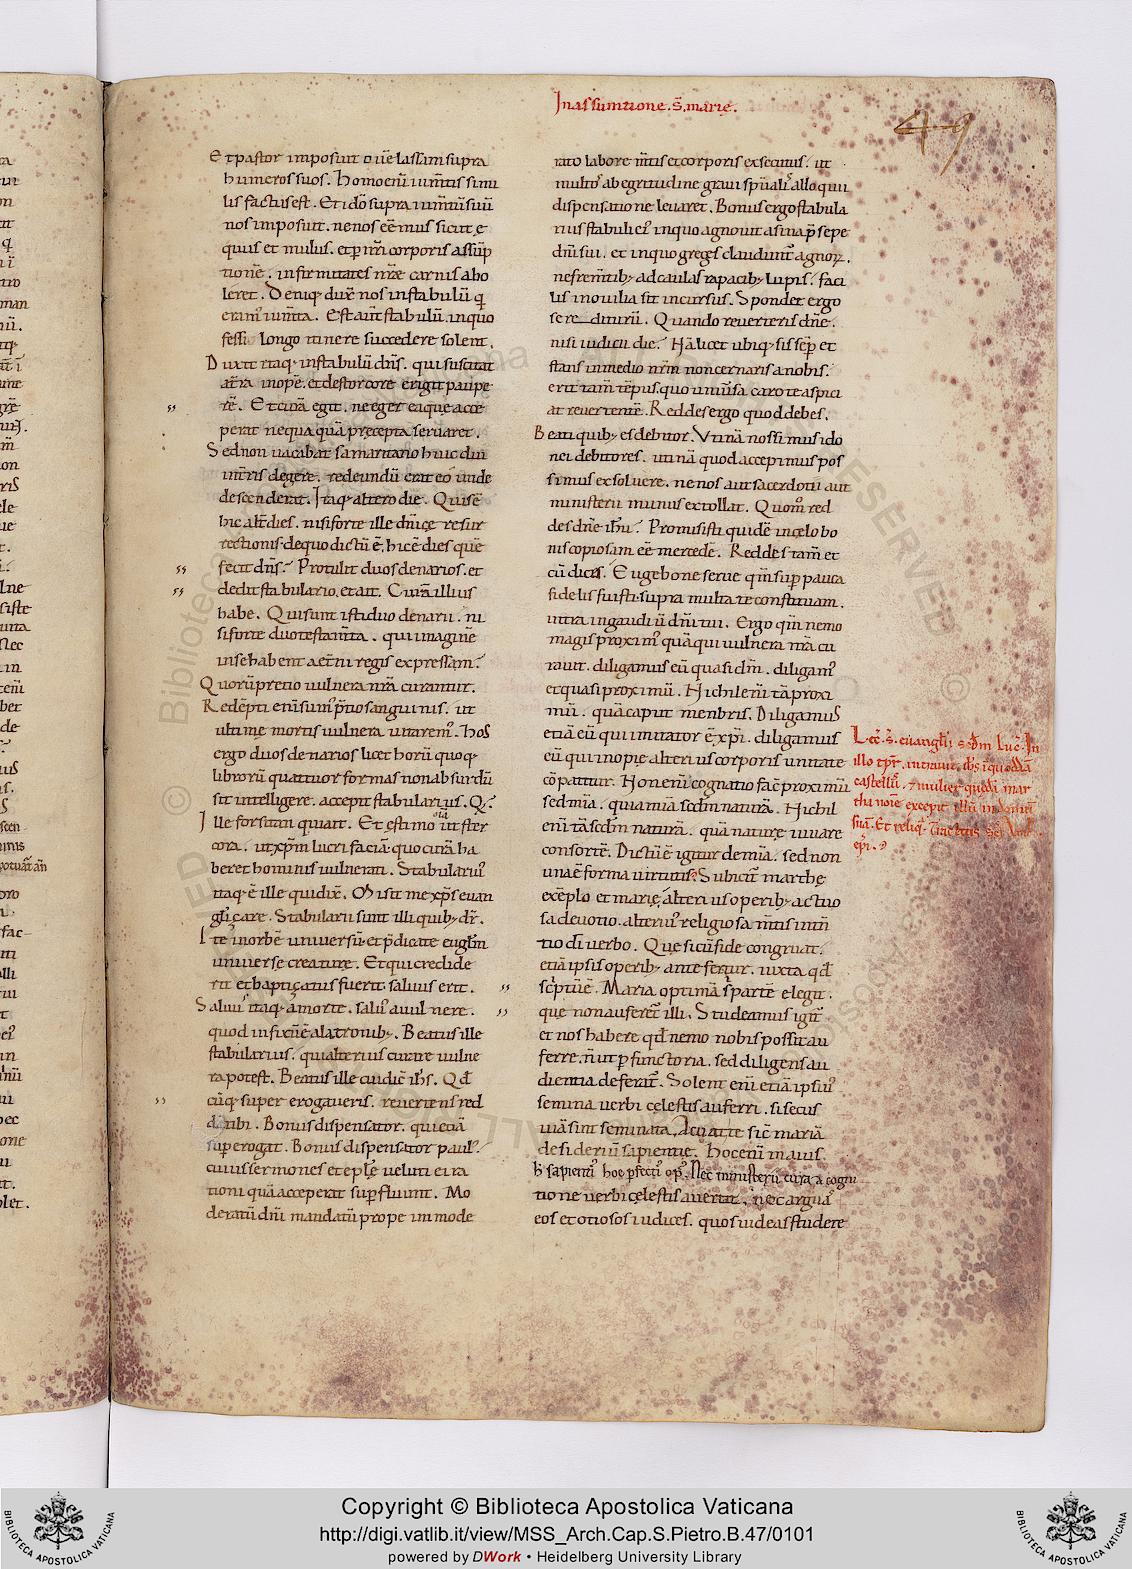 In assumtione. s̄. marię.
49
Et pastor imposuit ouē lassam supra
humeros suos. Homo enī iumtīs simi
lis factus est. Et idō supra iumtū suū
nos imposuit. ne nos eēmus sicut ę
quus et mulus. et ꝑ nr̄i corporis assūp
tionē. infirmitates nr̄ē carnis abo
leret. Deniqꝫ duxē nos in stabulū q̄
eramꝰ iumta. Est aūt stabulū. in quo
fessi longo itinere succedere solent.
Duxit itaqꝫ in stabulū dn̄s. qui suscitat
at̄ra inopē. et de stercore erigit paupe
rē. Et curā egit. ne eger ea quę acce
perat nequaquā pręcepta seruaret.
Sed non uacabat samaritano huic diu
int̄ris degere. redeundū erat eo unde
descenderat. Itaqꝫ altero die. Quis ē
hic alt̄ dies. nisi forte ille dn̄icę resur
rectionis. de quo dictū ē. hic ē dies quē
fecit dn̄s. Protulit duos denarios. et
dedit stabulario. et ait. Curā illius
habe. Qui sunt isti duo denarii. ni
si forte duo testam̄ta. qui imaginē
in se habent aet̄ni regis expressam.
Quorū pretio uulnera nr̄a curantur.
Redēpti enī sumꝰ p̄tio sanguinis. ut
ultimę mortis uulnera uitaremꝰ. Hos
ergo duos denarios licet horū quoqꝫ
librorū quattuor formas non absurdū
sit intelligere. accepit stabularius. Qs.
Ille forsitan qui ait. Et estimo ut ster
cora. ut xp̄m lucrifaciā. quo curā ha
beret hominis uulnerati. Stabulariꝰ
itaqꝫ ē ille qui dix̄. Misit me xp̄s euan
gl̄içare. Stabularii sunt illi quibꝫ dr̄.
Ite in orbē uniuersū. et p̄dicate euglīm
uniuersę creaturę. Et qui credide
rit et baptiçatus fuerit. saluus erit.
Saluus itaqꝫ a morte. saluꝰ a uulnere.
quod infixū ē a latronibꝫ. Beatus ille
stabularius. qui alterius curare uulne
ra potest. Beatus ille cui dic̄ ih̄s. Qd̄
cūqꝫ super erogaueris. reuertens red
dā tibi. Bonus dispensator. qui etiā
superogat. Bonus dispensator paulꝰ.
cuius sermones et eplę̄ ueluti ei ra
tioni quā acceperat sup̄fluunt. Mo
deratū dn̄i mandatū prope immode
rato labore m̄tis et corporis exsecutus. ut
multoꝰ ab egritudine graui sp̄ualiꝰ alloquii
dispensatione leuaret. Bonus ergo stabula
rius stabuli eiꝰ in quo agnouit asina p̄sepe
dn̄i sui. et in quo greges clauduntꝰ agnoꝝ.
ne frem̄tibꝫ ad caulas rapacibꝫ lupis. faci
lis in ouilia sit incursus. Spondet ergo
se redditurū. Quando reuerteris dn̄e.
nisi iudicii die. Nā licet ubiqꝫ sis semp̄ et
stans in medio nr̄m non cernaris a nobis.
erit tam̄ tēpus quo uniuꝰsa caro te aspici
at reuertentē. Reddes ergo quod debes.
Beati quibꝫ es debitor. Utinā nos simus ido
nei debitores. utinā quod accepimus pos
simus exsoluere. ne nos aut sacerdotii aut
ministerii munus extollat. Quomꝰ red
des dn̄e ih̄u. Promisisti quidē in cęlo bo
nis copiosam eē mercedē. Reddes tam̄ et
cū dices. Euge bone serue qm̄ sup̄ pauca
fidelis fuisti. supra multa te constituam.
intra in gaudiū dn̄i tui. Ergo qm̄ nemo
magis proximꝰ quā qui uulnera nr̄a cu
rauit. diligamus eū quasi dm̄. diligamꝰ
et quasi proximū. Nichil enī tā proxi
mū. quā caput menbris. Diligamus
etiā eū qui imitator ē xp̄i. diligamus
eū qui inopię alterius corporis unitate
cōpatitur. Non enī cognatio fac̄ proximū
sed mīa. quia mīa scd̄m naturā. Nichil
enī tā scd̄m naturā. quā naturę iuuare
consortē. Dictū ē igitur de mīa. sed non
una ē forma uirtutis. Subicit̄ marthę
exēplo et marię. alterius operibꝫ actuo
sa deuotio. alteriꝰ religiosa m̄tis inten
tio dī uerbo. Que si cū fide congruat.
etiā ipsis operibꝫ antefertur. iuxta qd̄
sc̄ptū ē. Maria optimā partē elegit.
que non auferet̄ illi. Studeamus igit̄
et nos habere qd̄ nemo nobis possit au
ferre. n̄ ut ꝑfunctoria. sed diligens au
dientia deferat̄. Solent enī etiā ipsiꝰ
semina uerbi cęlestis auferri. si secus
uiā sint seminata. Aduatte sic̄ mariā
desideriū sapientię. Hoc enī maius.
hoc perfectiꝰ opꝰ. Nec ministerii cura a cogni
tione uerbi cęlestis auertat. nec arguaꝰ
eos et otiosos iudices. quos uideas studere
Lec̄. s̄. euanglīi s̄c̄dm Luc̄. In
illo tp̄r. intrauit ih̄s ī quoddā
castellū. et mulier quędā mar
tha noīe excepit illū in domū
suā. Et reliqꝰ. Tractatus sc̄i Am
ep̄i.
Copyright © Biblioteca Apostolica Vaticana
http://digi.vatlib.it/view/MSS_Arch.Cap.S.Pietro.B.47/0101
powered by DWork • Heidelberg University Library
BIBLIOTECA APOSTOLICA VATICANA
BIBLIOTECA APOSTOLICA VATICANA